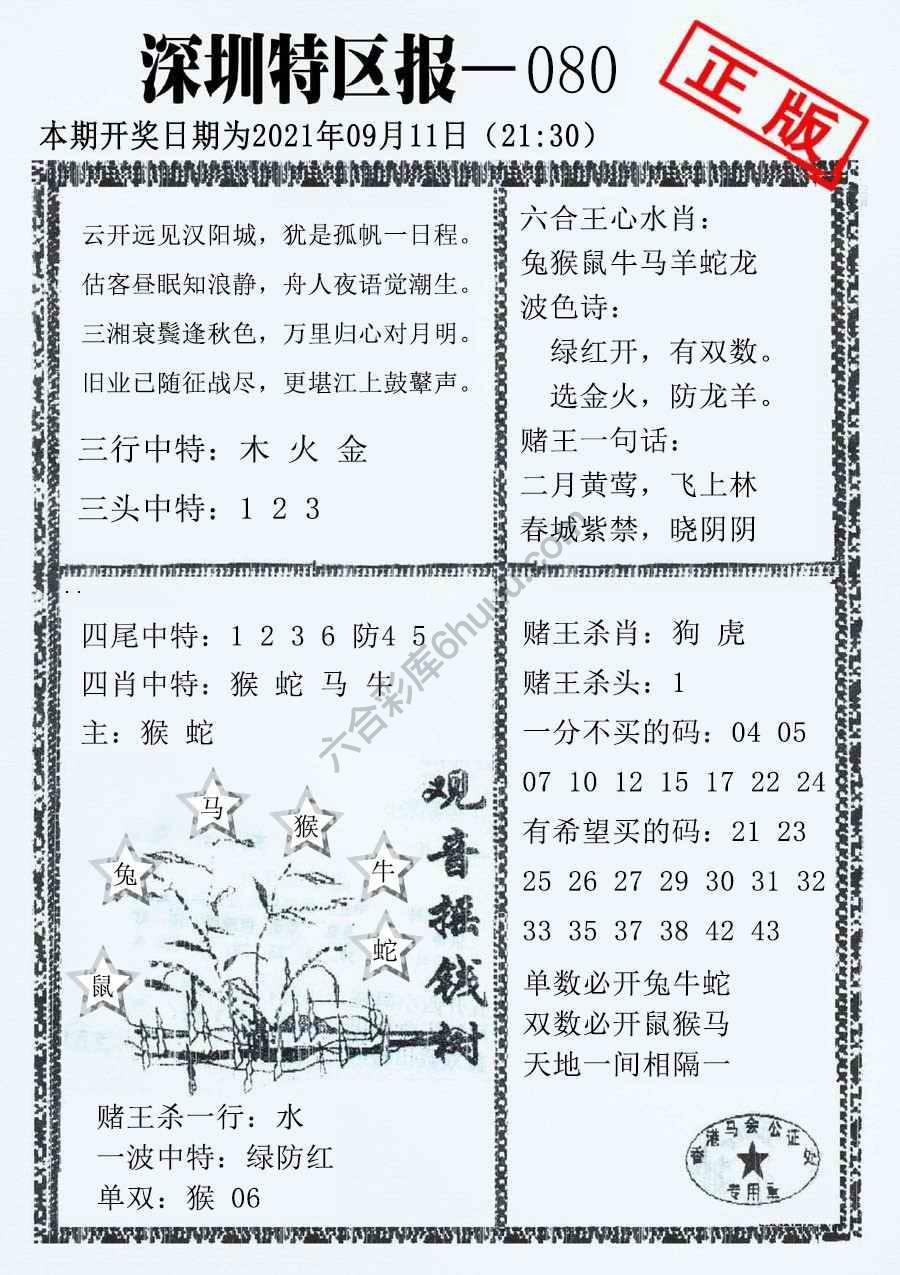 深圳特区报—080
正版
本期开奖日期为2021年09月11日（21:30）
云开远见汉阳城，犹是孤帆一日程。
估客昼眠知浪静，舟人夜语觉潮生。
三湘衰鬓逢秋色，万里归心对月明。
旧业已随征战尽，更堪江上鼓鼙声。
三行中特：木 火 金
三头中特：1 2 3
六合王心水肖：
兔猴鼠牛马羊蛇龙
波色诗：
绿红开，有双数。
选金火，防龙羊。
赌王一句话：
二月黄莺，飞上林
春城紫禁，晓阴阴
四尾中特：1 2 3 6 防4 5
四肖中特：猴 蛇 马 牛
主：猴 蛇
马
猴
兔
牛
蛇
鼠
观音摇钱树
赌王杀一行：水
一波中特：绿防红
单双：猴 06
赌王杀肖：狗 虎
赌王杀头：1
一分不买的码：04 05
07 10 12 15 17 22 24
有希望买的码：21 23
25 26 27 29 30 31 32
33 35 37 38 42 43
单数必开兔牛蛇
双数必开鼠猴马
天地一间相隔一
香港马会公证处
六合彩库6huu.com